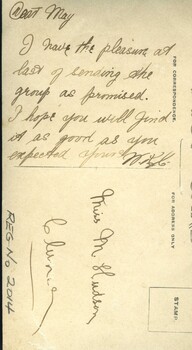 Dear May
I have the pleasure at
last of sending the
group as promised.
I hope you will find
it as good as you
expected yours
Miss M. Hudson
Clunes
REG No 2014
FOR CORRESPONDENCE
FOR ADDRESS ONLY
STAMP